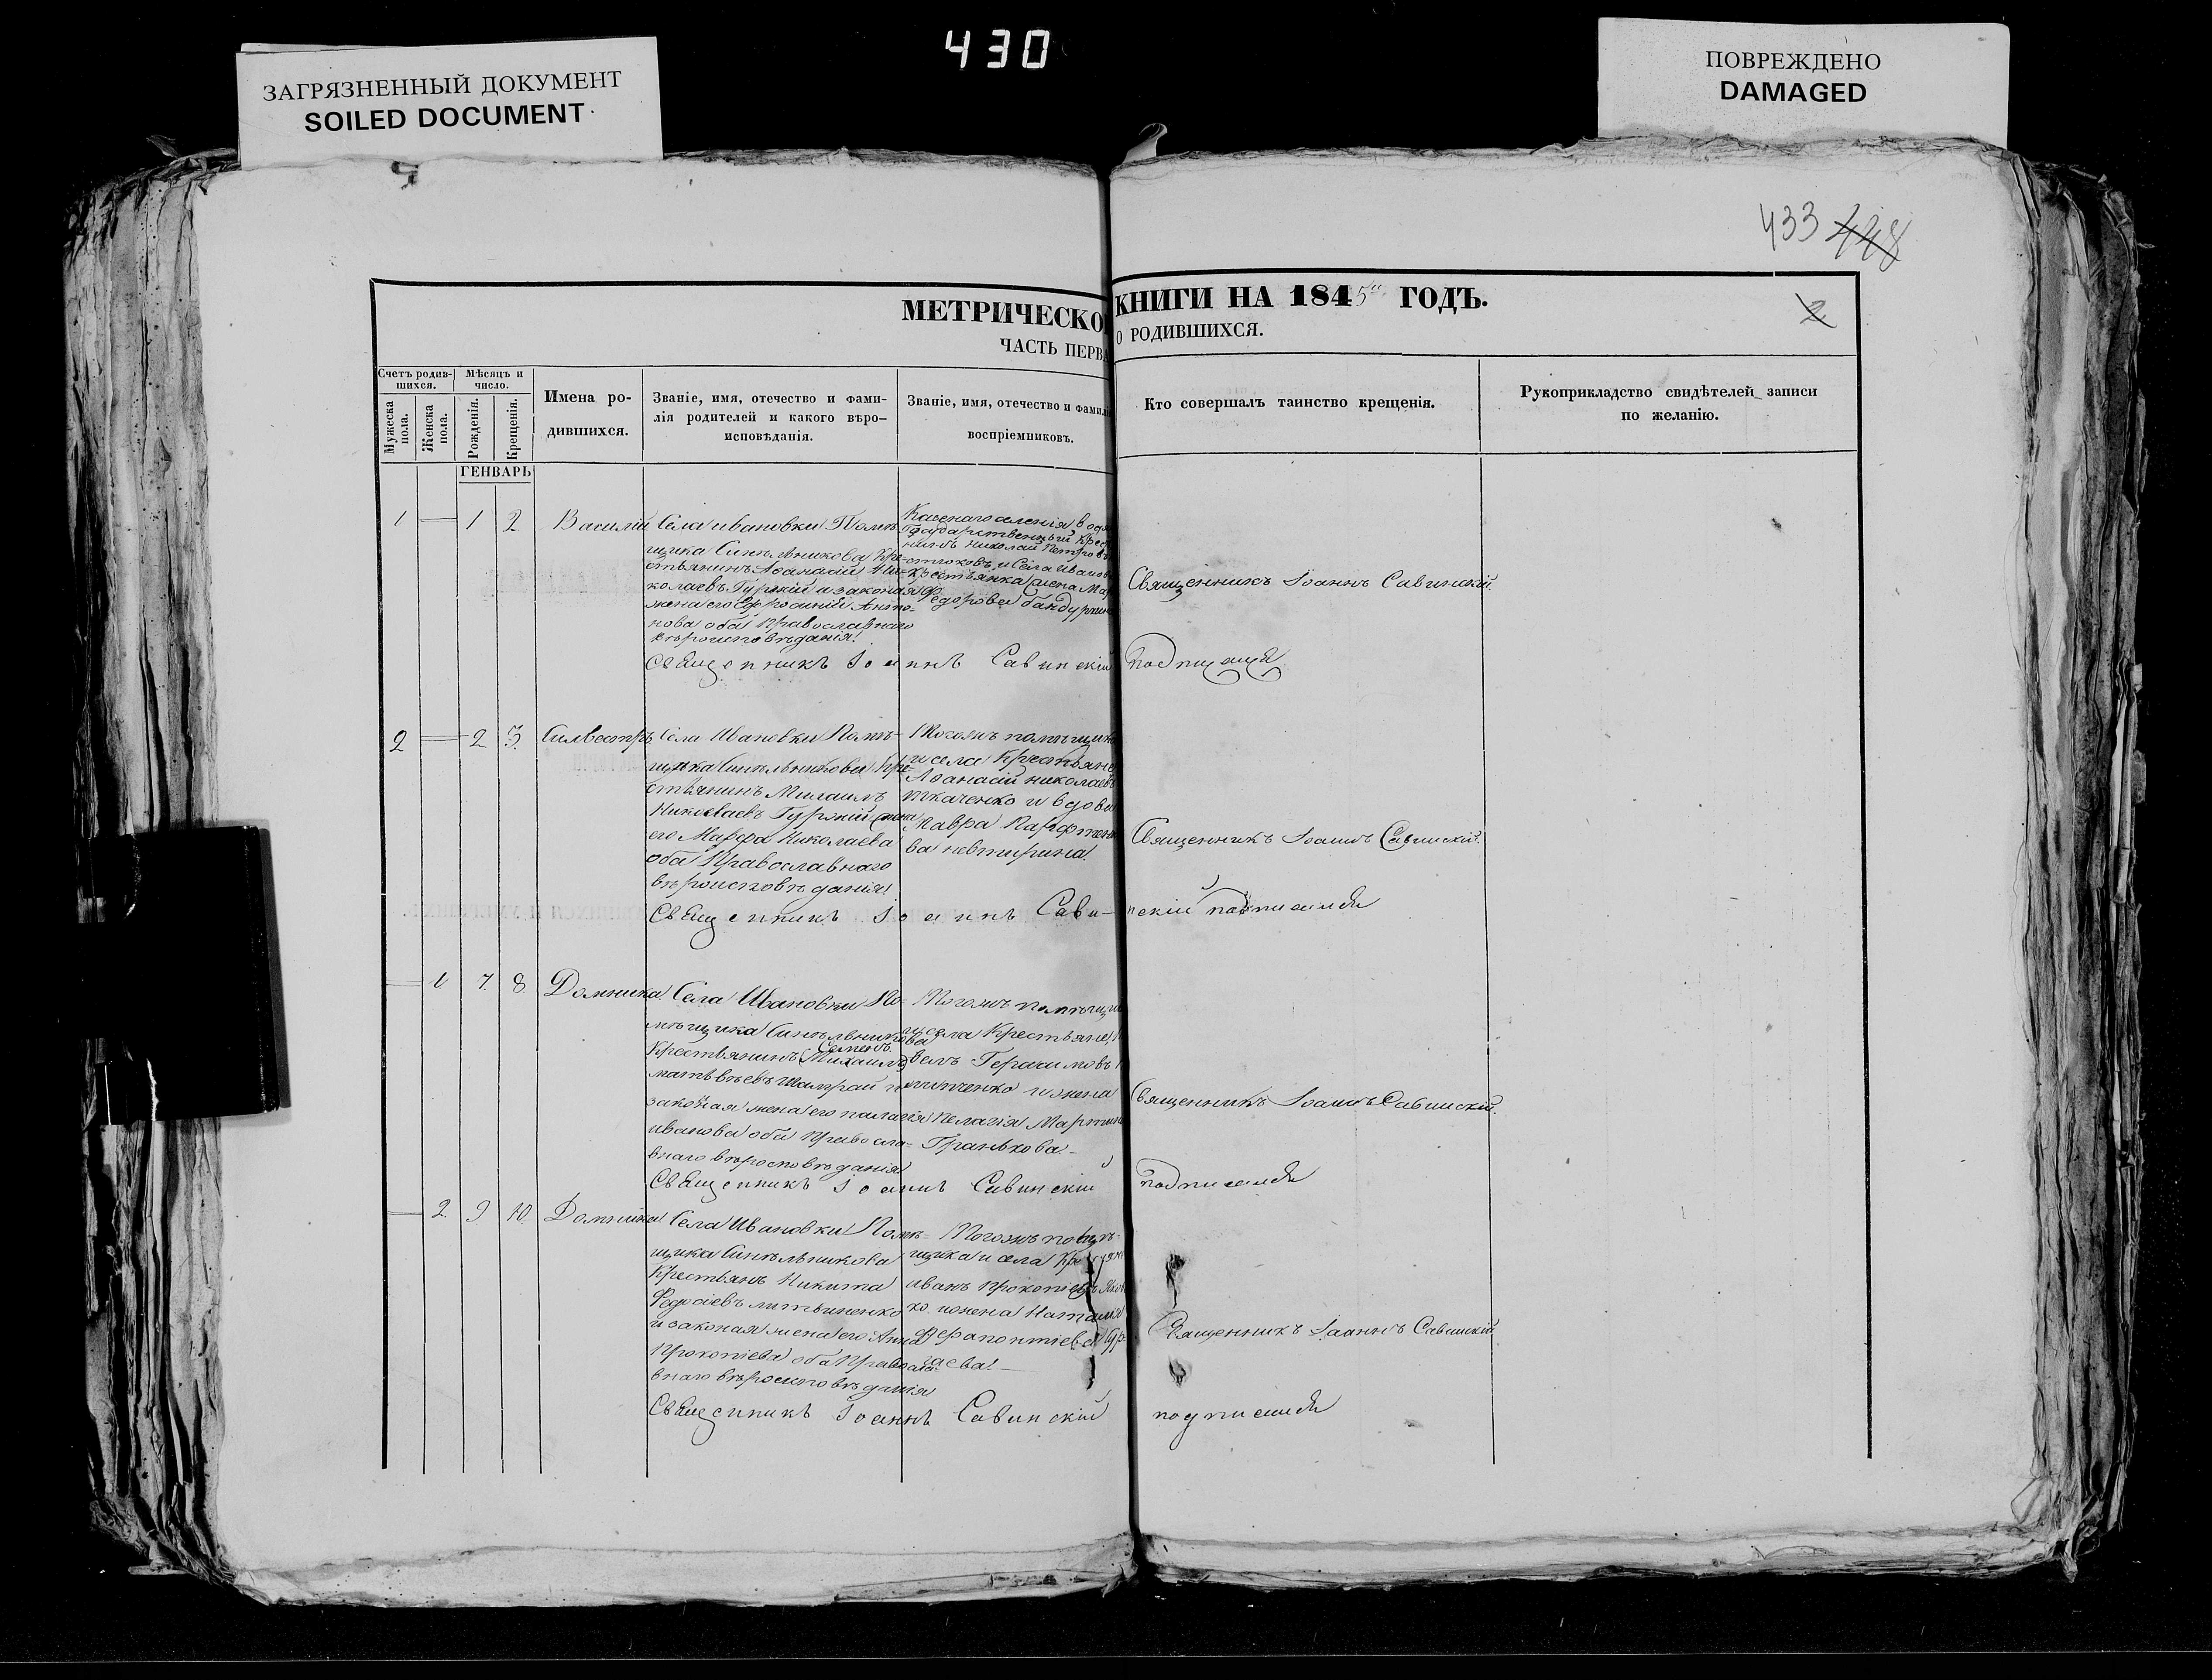 430
ЗАГРЯЗНЕННЫЙ ДОКУМЕНТ
SOILED DOCUMENT
ПОВРЕЖДЕНО
DAMAGED
433 448
2
МЕТРИЧЕСКО КНИГИ НА 1845й ГОДЪ.
ЧАСТЬ ПЕРВА О РОДИВШИХСЯ.
Счетъ родив-
шихся.
Мужеска пола.
Женска пола.
Мѣсяцъ и
число.
Рожденія.
Крещенія.
Имена ро-
дившихся.
Званіе, имя, отечество и фами-
лія родителей и какого вѣро-
исповѣданія.
Званіе, имя, отечество и фамилі
воспріемниковъ.
Кто совершалъ таинство крещенія.
Рукоприкладство свидѣтелей записи
по желанію.
ГЕНВАРЬ
1 — 1 2 Василій
Села ивановки Помѣ-
щика Синѣльникова Кре-
стьянинъ Аѳанасій Ни-
колаевъ Гуржій и законая
жена его Ефросинія Анто-
нова оба Православнаго
вѣроисповѣданія!
Казенаго
Государственный Крес
нинъ Николай Петровъ
и Села Иванов
Крестьянка
Федорова
Священникъ Іоаннъ Савинскій.
Священникъ Іоаннъ Савинскій подписался
2 — 2 3 Силвестръ
Села Ивановки Помѣ-
щика Синѣльникова Кре-
стьянинъ Михаилъ
Николаевъ Гуржій жена
его Марфа Николаева
оба Православнаго
вѣроисповѣданія!
Тогожъ помѣщика
и села Крестьяне
Аѳанасій николаевъ
ткаченко и вдова
Мавра Парфтен
ва
Священникъ Іоаннъ Савинскій.
Священникъ Іоаннъ Сави- нскій подписался
— 1 7 8 Домника
Села Ивановки По-
мѣщика Синѣльникова
Крестьянинъ Семенъ Михаилъ
матвѣевъ Шамрай и
законая жена его палагія
иванова оба Правосла-
внаго вѣроисповѣданія
Тогожъ помѣщи
и села Крестьяне,
велъ Герасимовъ
и жена
Пелагія Мартин
Гранькова. —
Священникъ Іоаннъ Савинскій.
Священникъ Іоаннъ Савинскій подписался
— 2 9 10 Домника
Села Ивановки Помѣ-
щика Синѣльникова
Крестьянъ Никита
Федосіевъ литвиненко
и законая жена его Анна
Прокопіева оба Правосла-
внаго вѣроисповѣданія
Тогожъ помѣ-
щика и села
иванъ Прокопіевъ
ко и жена Наталія
Ферапонтіева
Священникъ Іоаннъ Савинскій
Священникъ Іоаннъ Савинскій подписался